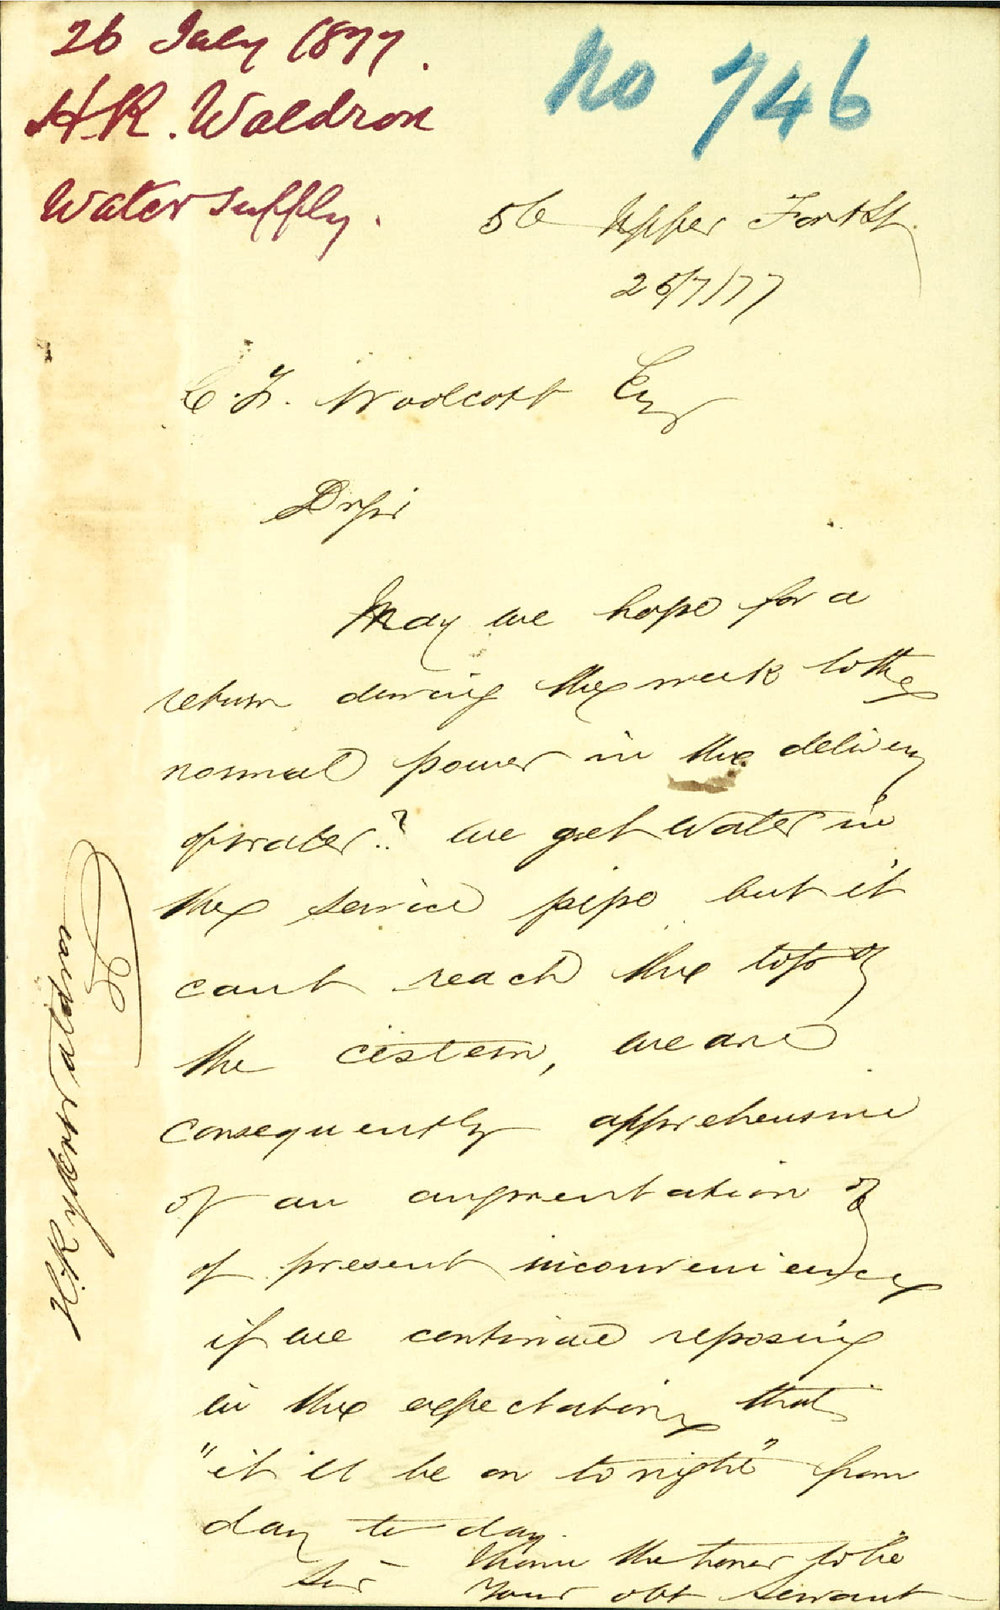 26 July 1877.
H R. Waldron
Water supply.
No 746
56 Upper Fort St.
26/7/77
C. F. Woolcott Esq
Dr Sir
May we hope for a
return during the week to the
normal power in the delivery
of water? We get water in
the service pipe but it
cant reach the top of
the cistern, we are
consequently apprehensive
of an augmentation of
of present inconveniency
if we continue reposing
in the expectation, that
"it ill be on to night" from
day to day.
I have the honor to be
Sir Your obt servant
H. Ryder Waldron